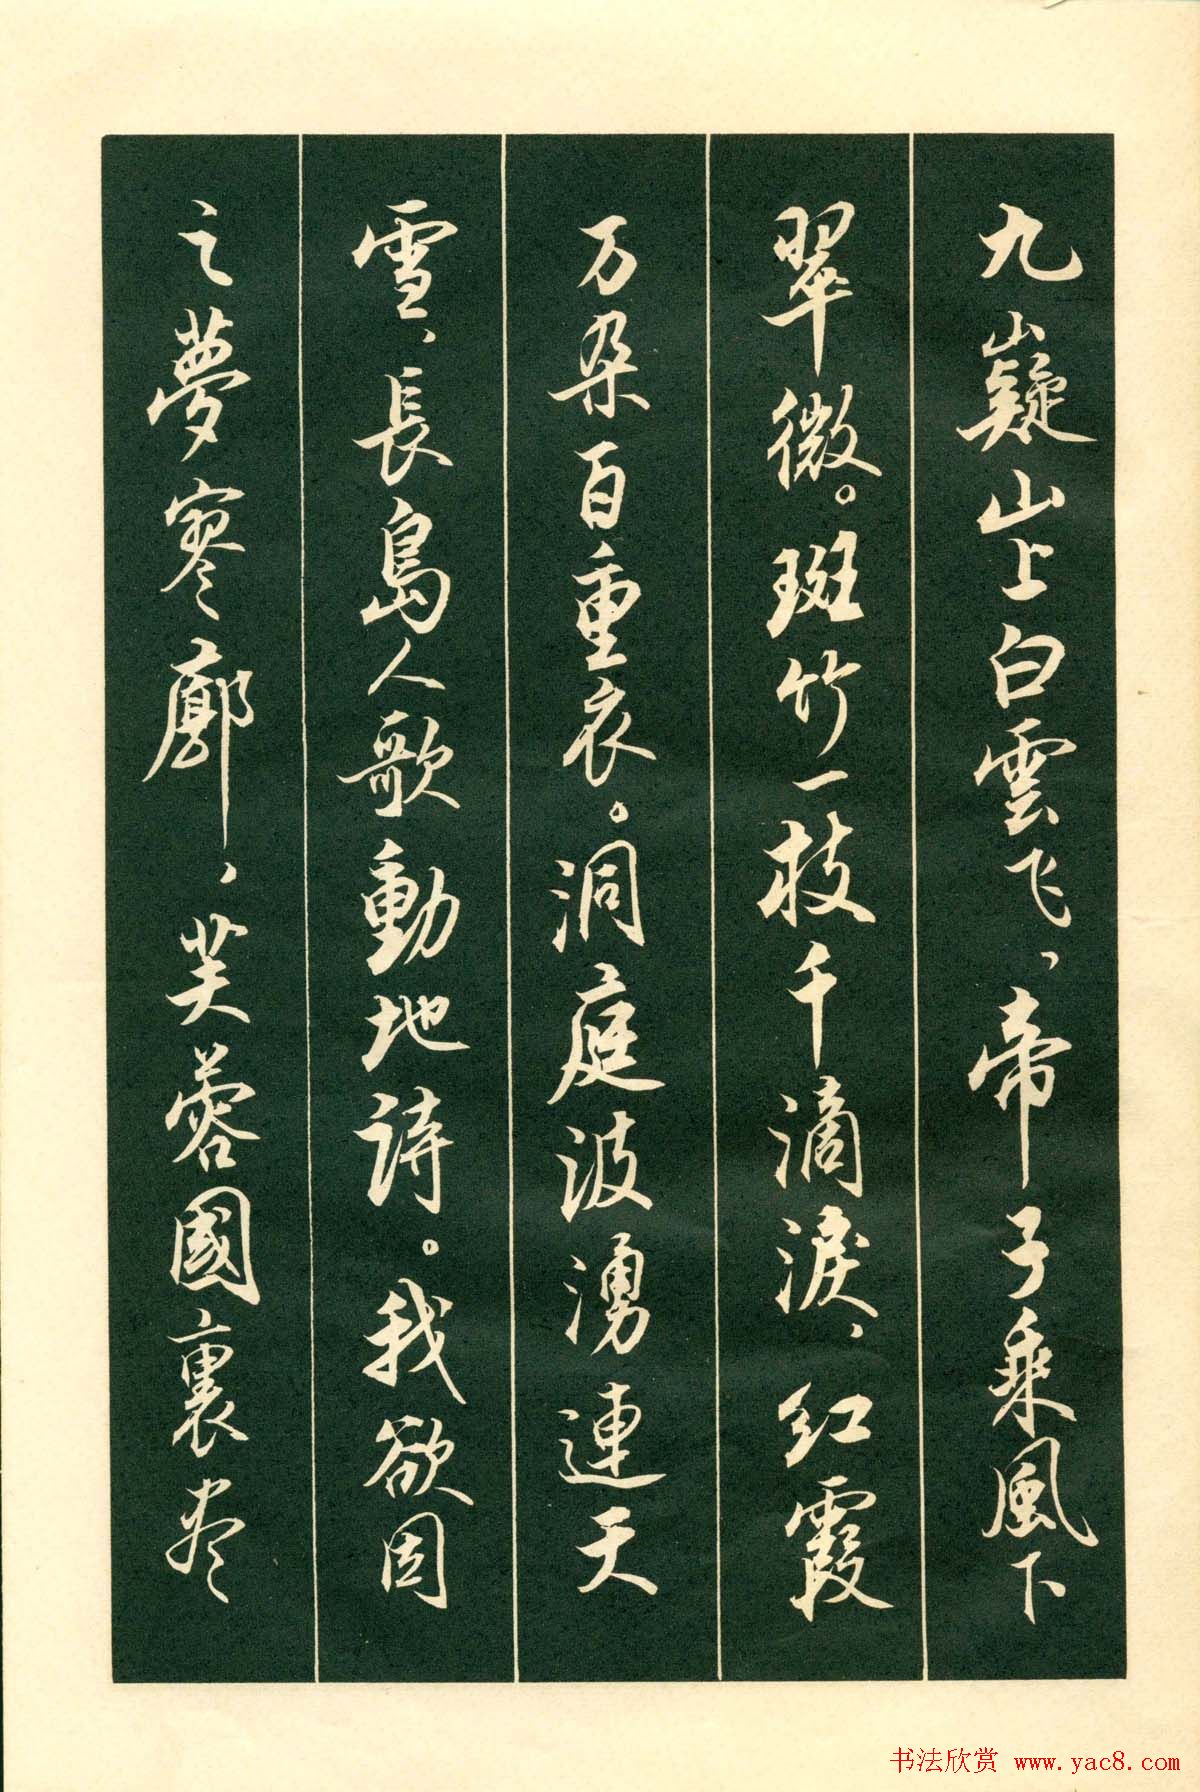 九嶷山上白雲飞、帝子乘風下
翠微。斑竹一枝千滴淚、红霞
万朵百重衣。洞庭波湧連天
雪、長島人歌動地詩。我欲因
之夢寥廓、芙蓉國裏尽
书法欣赏 www.yac8.com